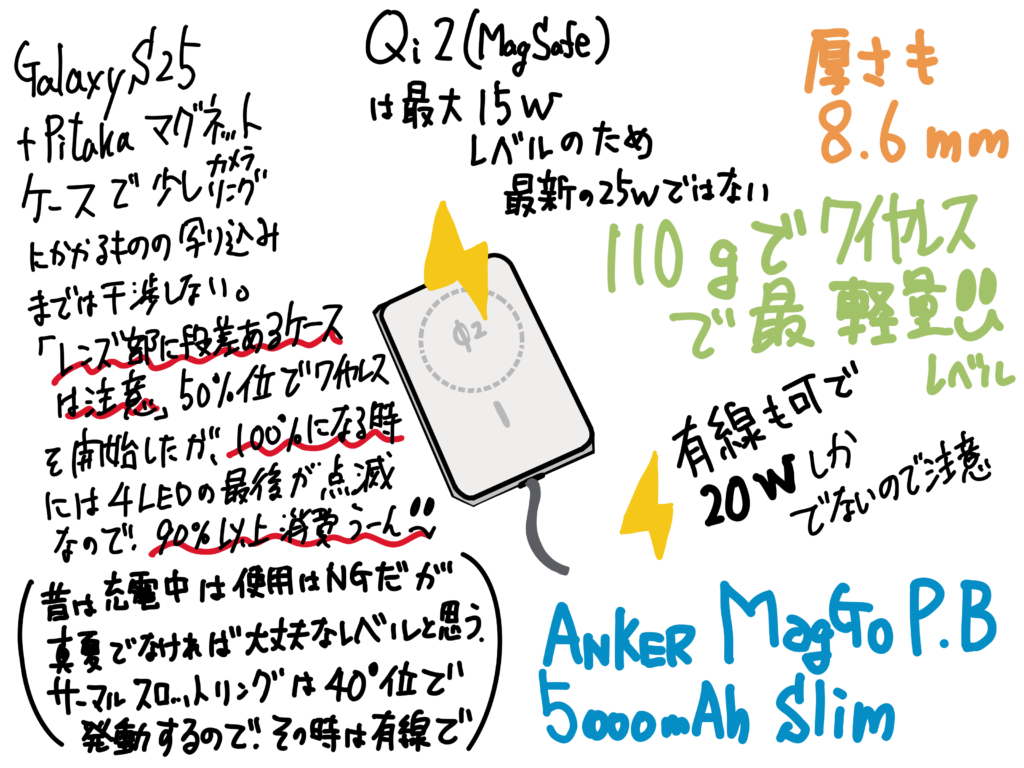 Galaxy S25
+Pitaka マグネット
ケースで少しカメラリング
にかかるものの余り込み
までは干渉しない。
「レンズ部に段差あるケース
は注意」50%位でワイヤレス
を開始したが、100%になる時
には4LEDの最後が点滅
なので、90%以上消費うーん!!
(昔は充電中は使用はNGだが
真夏でなければ大丈夫なレベルと思う.
サーマルスロットリングは40°位で
発動するので、その時は有線で)
Qi2(MagSafe)
は最大15W
レベルのため
最新の25Wではない
Qi2
厚さも
8.6mm
110gでワイヤレス
で最軽量!!
レベル
有線も可で
20Wしか
でないので注意
ANKER MagGo P.B
5000mAh Slim